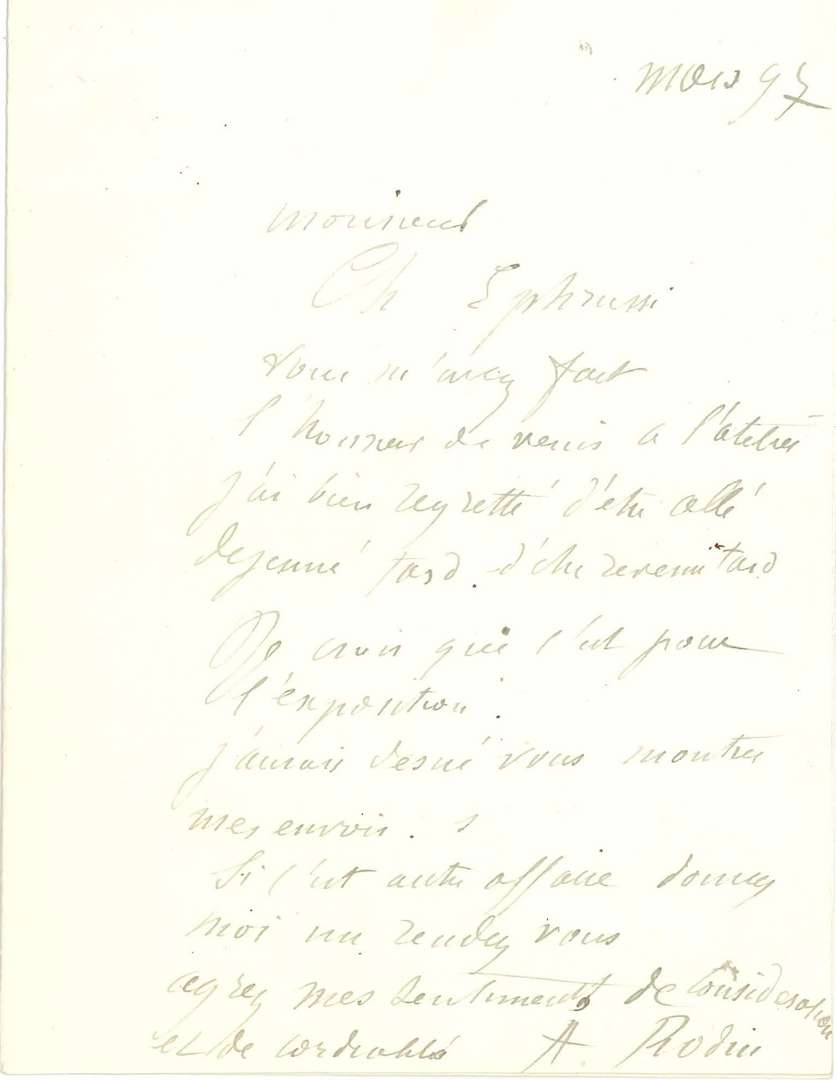 Mars 97
Monsieur
Ch Ephrussi
Vous m'avez fait
l'honneur de venir a l'atelier
j'ai bien regretté d'être allé
dejeuné tard. d'être revenu tard
Je crois que c'est pour
l'exposition.
j'aurais desiré vous montrer
mes envois.
Si c'est autre affaire donnez
moi un rendez vous
agrez mes sentiments de consideration
et de cordialité A Rodin